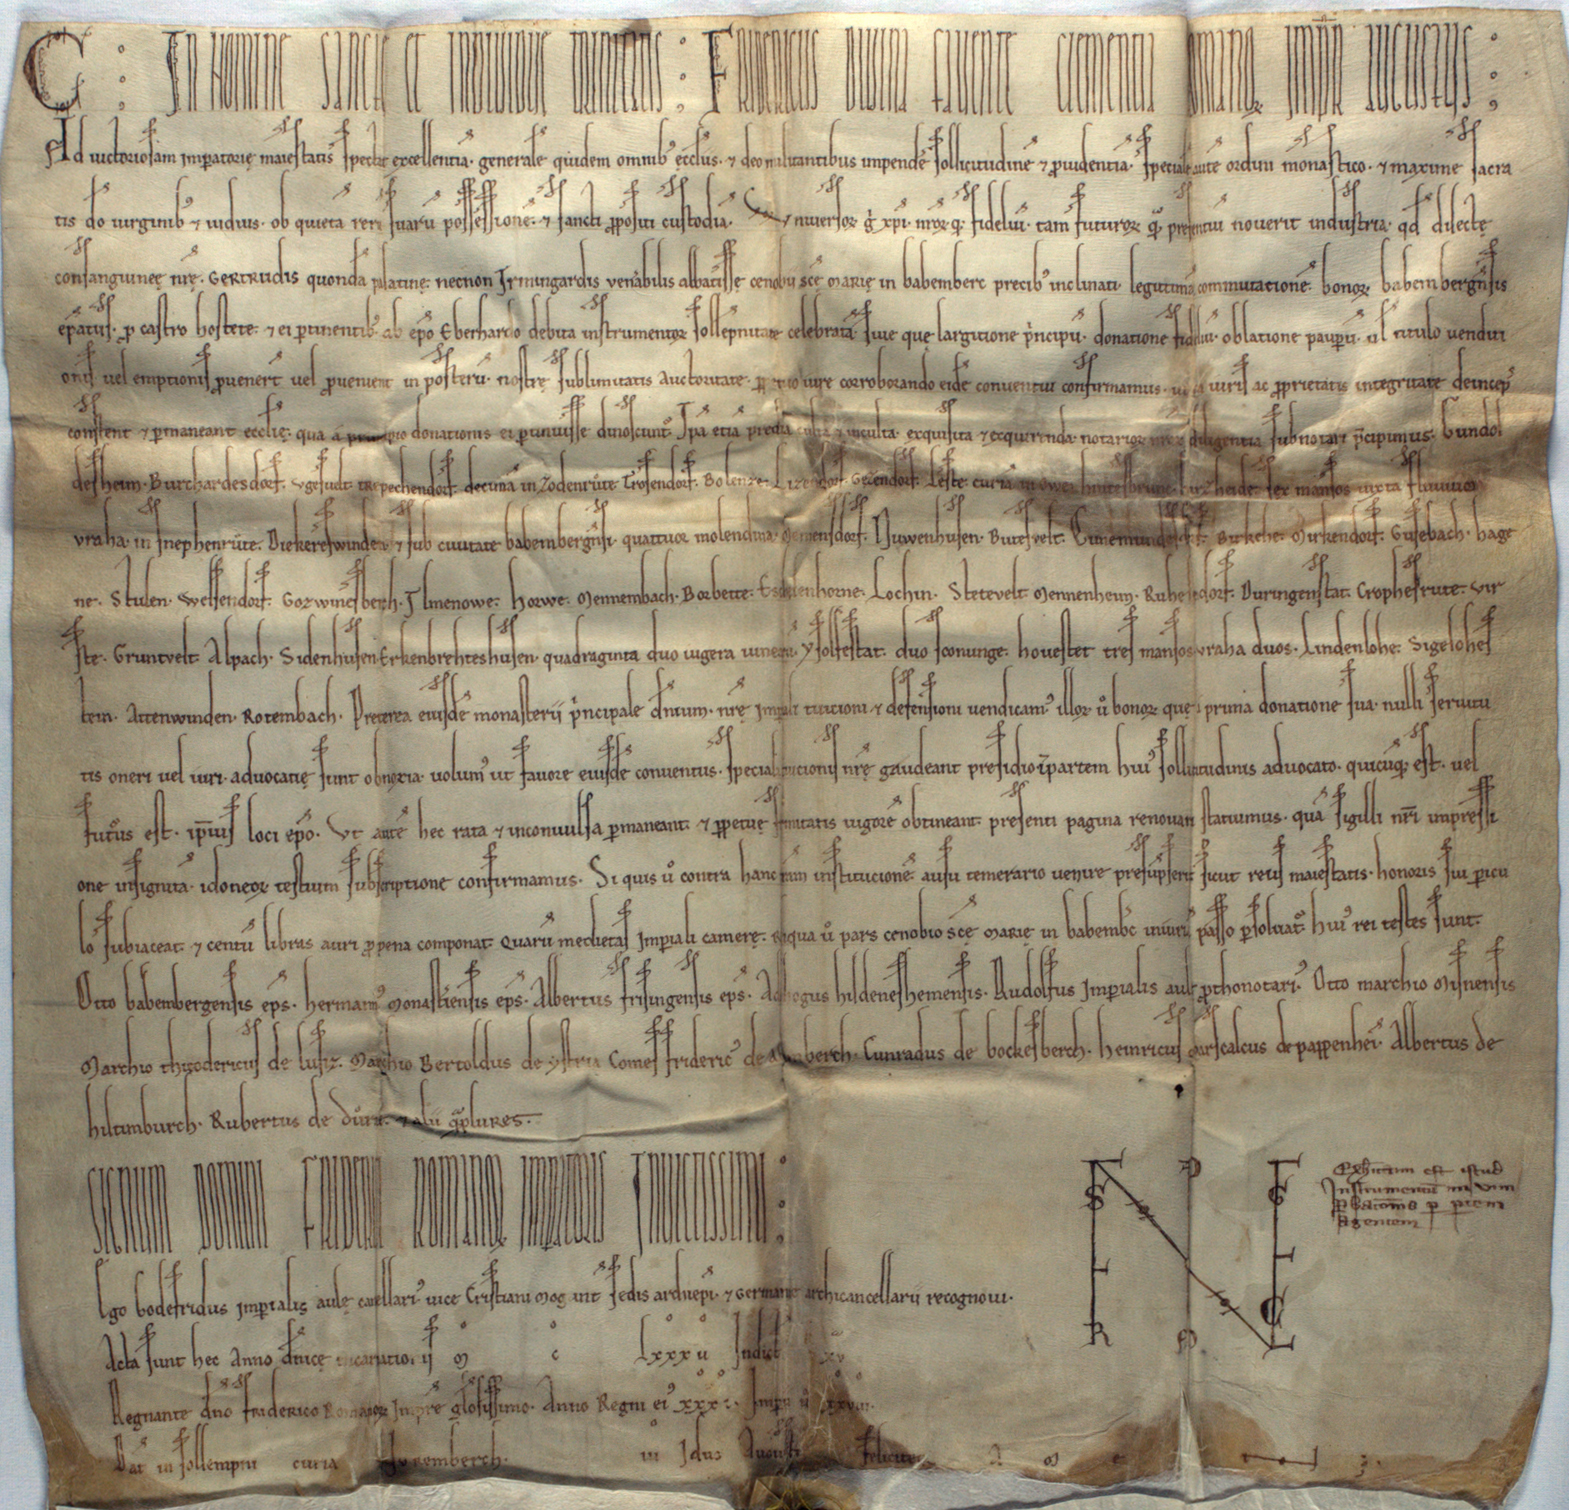 C : In nomine sancte et individue trinitatis : Fridericus divina favente clementia romanoꝝ impr̄ augustus :
Ad uictoriosam imperatorię maiestatis spectat excellentiā. generale quidem omnibꝰ ecclesiis. ⁊ deo militantibus impendere sollicitudinē ⁊ prouidentiā. speciale autē ordini monastico. ⁊ maxime sacra
tis dō uirginibꝰ ⁊ uiduis. ob quietā rerū suarū possessionē. ⁊ sancti propositi custodiā. Vniuersoꝝ g̊ xp̄i. nr̄oꝝ q̄ fideliū. tam futuroꝝ quā presentiū nouerit industria. qd̄ dilectę
consanguineę nr̄ę. Gertrudis quondā palatinę. necnon Irmingardis venerabilis abbatissę cenobii scę Marię in babemberc precibꝰ inclinati legitimā commutationē. bonoꝝ babembergensis
ep̄atus. p̱ castro hostete. ⁊ ei ꝑtinentibꝰ ab ep̄o Eberhardo debita instrumentoꝝ sollēpnitate celebratā. siue quę largitione principū. donatione fideliū. oblatione pauperū. ul̄ titulo venditi
onis uel emptionis prouenerūt uel prouenient in posterū. nostrę sublimitatis auctoritate. iure corroborando eidē conuentui confirmamus. iuris ac proprietatis integritate deincepˢ
consistent ⁊ ꝑmaneant ecclię. qua a principio donationis ei ꝑtinuisse dinoscunt᷑. Ipa etiā predia culta ⁊ inculta. exquisita ⁊ exquirenda. notarioꝝ nr̄oꝝ diligentia subnotari precipimus. Gundol
desheim. Burchardesdorf. ugesudt. trepechendorf. decima in Zodenrute. Trosendorf. Bolenze. Lizendorf. Gezendorf. Leste. curia heide. sex mansos iuxta fluuium
vraha. in Snephenrute. Diekereswinden. ⁊ sub ciuitate babembergensi. quattuor molendina. Memensdorf. Nuwenhusen. Butesvelt. Birkehe. Mirkendorf. Gusebach. hage
ne. Stulen. Welsendorf. Gozwinesberch. Ilmenowe. Horwe. Mennembach. Borbette. Eschenhorne. Lochin. Stetevelt. Mennenheim. Ruhesdorf. Duringenstat. Crophesrute. vir
ste. Gruntvelt. Alpach. Sidenhusen. Erkenbrehteshusen. quadraginta duo iugera uinearū. ysolfestat. duo sconunge. houestet tres mansos. vraha duos. Lindenlohe. Sigelohes
tem. Attenwinden. Rotembach. Preterea eiusdē monasterii principale dn̄ium. nr̄ę imperiali tuicioni ⁊ defensioni uendicamꝰ illoꝝ u̇ bonoꝝ quę prima donatione sua. nulli seruitu
tis oneri uel iuri. aduocatię sunt obnoxia. uolumꝰ ut fauore eiusdē conuentus. specialis tuicionis nr̄ę gaudeant presidio. partem huiꝰ sollicitudinis aduocato. quicūq̄ est. uel
futurus est. ipsius loci ep̄o. Vt autē hec rata ⁊ inconuulsa ꝑmaneant. ⁊ perpetuę firmitatis uigorē obtineant. presenti pagina renouari statuimus. quā sigilli nr̄i impressi
one insignita. idoneoꝝ testium subscriptione confirmamus. Si quis u̇ contra hanc nr̄am institucionē. ausu temerario uenire presūpserit sicut reus maiestatis. honoris sui ꝑicu
lo subiaceat. ⁊ centū libras auri pro pena componat. Quarū medietas imperiali camerę. reliqua u̇ pars cenobio scę Marię in babembc iniuriā passo ꝑsoluat᷑. huiꝰ rei testes sunt.
Otto babembergensis eps. hermannꝰ monastiensis eps. Albertus frisingensis eps. Adhogus hildeneshemensis. Rudolfus imperialis aulę prothonotariꝰ. Otto marchio misnensis
Marchio thiodericus de lusiz. Marchio Bertoldus de ystria. Comes fridericꝰ de Cunradus de bockesberch. Heinricus marscalcus de pappenheī. Albertus de
hiltinburch. Rubertus de durn. ⁊ alii q̄plures.
Signum domini Friderici romanoꝝ imperatoris invictissimi :
Ego Godefridus imperialis aulę cancellariꝰ uice Cristiani mogunt sedis archiepi. ⁊ Germanię archicancellarii recognoui.
Acta sunt hec Anno dn̄icę incarnationis M C Lxxxii Indict xv
Regnante dn̄o friderico Romanoꝝ Impr̄e gl̄osissimo. Anno Regni eiꝰ xxx. Imperii ū xxviii.
Dat in sollempni curia Nuremberch. iii Idus Augusti feliciter a m e n
Exhibitum est istud
Instrumentū in vim
ꝓbationis p̱ ptem
Agentem